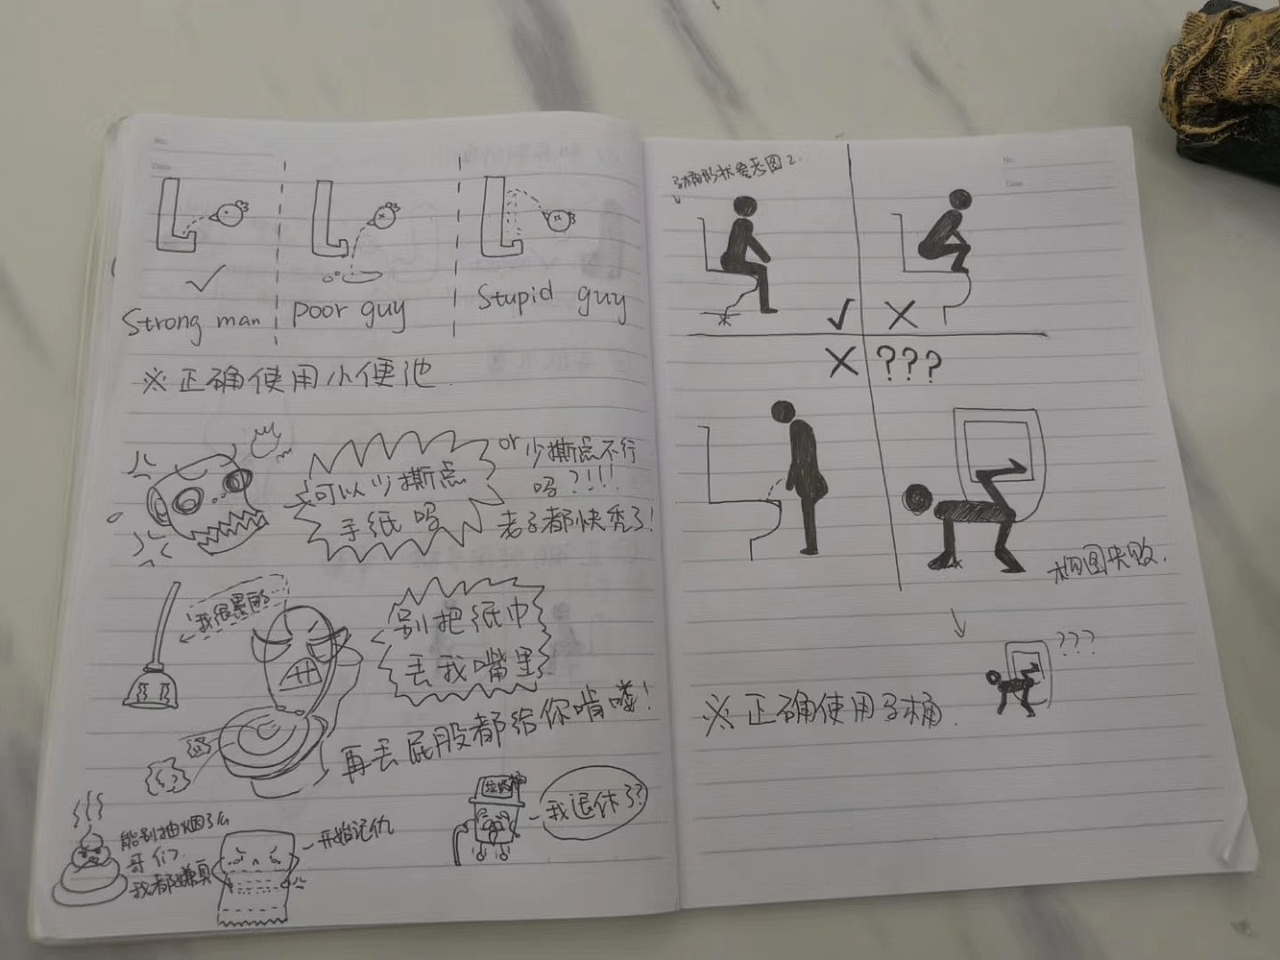 No.
Date
Strong man
poor guy
Stupid guy
※正确使用小便池.
可以少撕点
手纸吗
or 少撕点不行
吗?!!!
老子都快秃了!
我很累的
别把纸巾
丢我嘴里
再丢屁股都给你啃喽!
能别抽烟了么
哥们?
我都嫌臭
开始记仇
垃圾桶
我退休了?
No.
Date
√
×
×
???
构图失败.
???
※正确使用马桶.